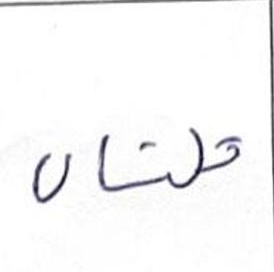 قلشان